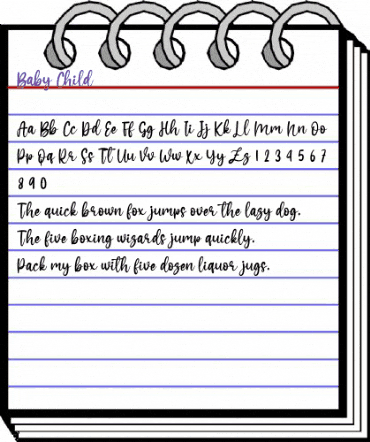 Baby Child
Aa Bb Cc Dd Ee Ff Gg Hh Ii Jj Kk Ll Mm Nn Oo
Pp Qq Rr Ss Tt Uu Vv Ww Xx Yy Zz 1 2 3 4 5 6 7
8 9 0
The quick brown fox jumps over the lazy dog.
The five boxing wizards jump quickly.
Pack my box with five dozen liquor jugs.